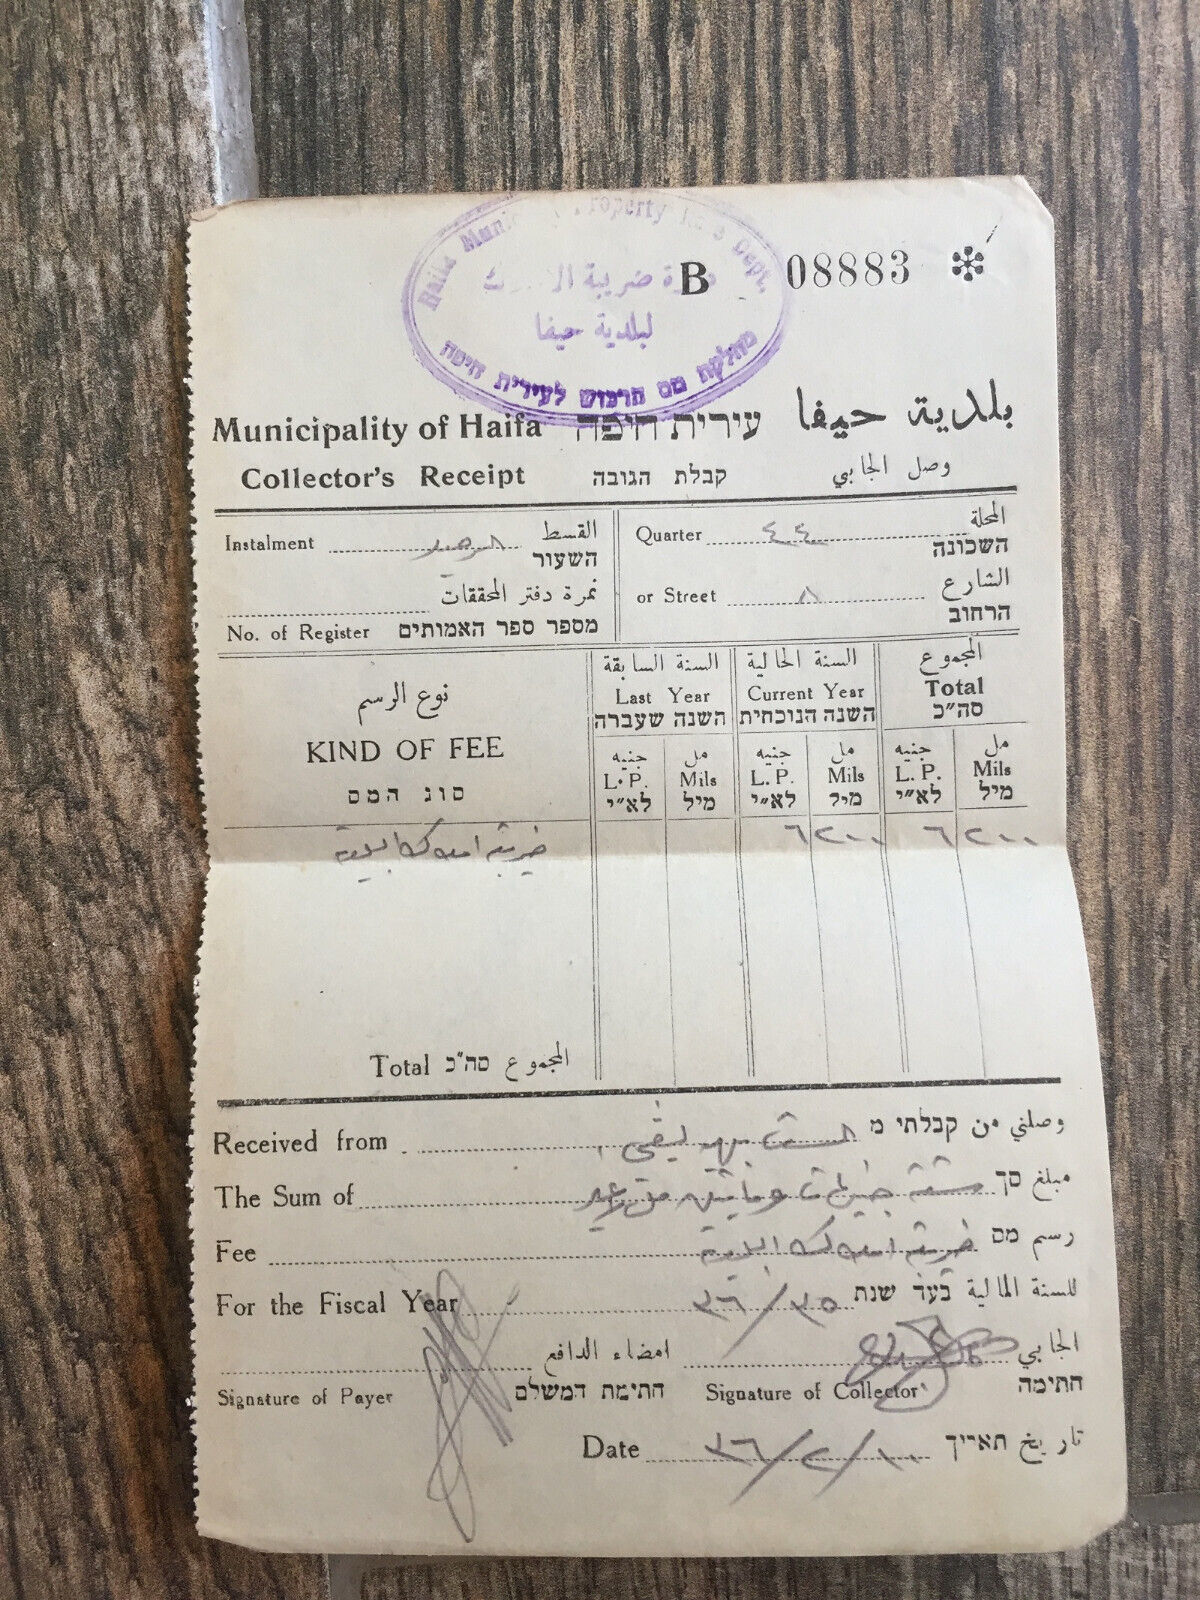 Haifa Municipality Property Rate Dept.
ضريبة
B 08883
لبلدية حيفا
מחלקת מס הרכוש לעירית חיפה
Municipality of Haifa עירית חיפה بلدية حيفا
Collector's Receipt קבלת הגובה وصل الجابي
Instalment القسط
השעור
Quarter ٤٤ المحلة
השכונה
نمرة دفتر المحققات
No. of Register מספר ספר האמותים
or Street ٨ الشارع
הרחוב
نوع الرسم السنة السابقة السنة الحالية المجموع
Last Year Current Year Total
השנה שעברה השנה הנוכחית סה"כ
KIND OF FEE جنيه مل جنيه مل جنيه مل
L.P. Mils L.P. Mils L.P. Mils
סוג המס לא"י מיל לא"י מיל לא"י מיל
ضريبة املاك البلدية ٦ ٢٠٠ ٦ ٢٠٠
Total סה"כ المجموع
Received from الست קבלתי מ وصلني من
The Sum of ستة جنيهات ومائتين مل סך مبلغ
Fee ضريبة املاك البلدية מס رسم
For the Fiscal Year ٣٥/٣٦ בעד שנת للسنة المالية
امضاء الدافع الجابي
Signature of Payer חתימת המשלם Signature of Collector חתימה
Date ١٠/٢/٣٦ תאריך تاريخ